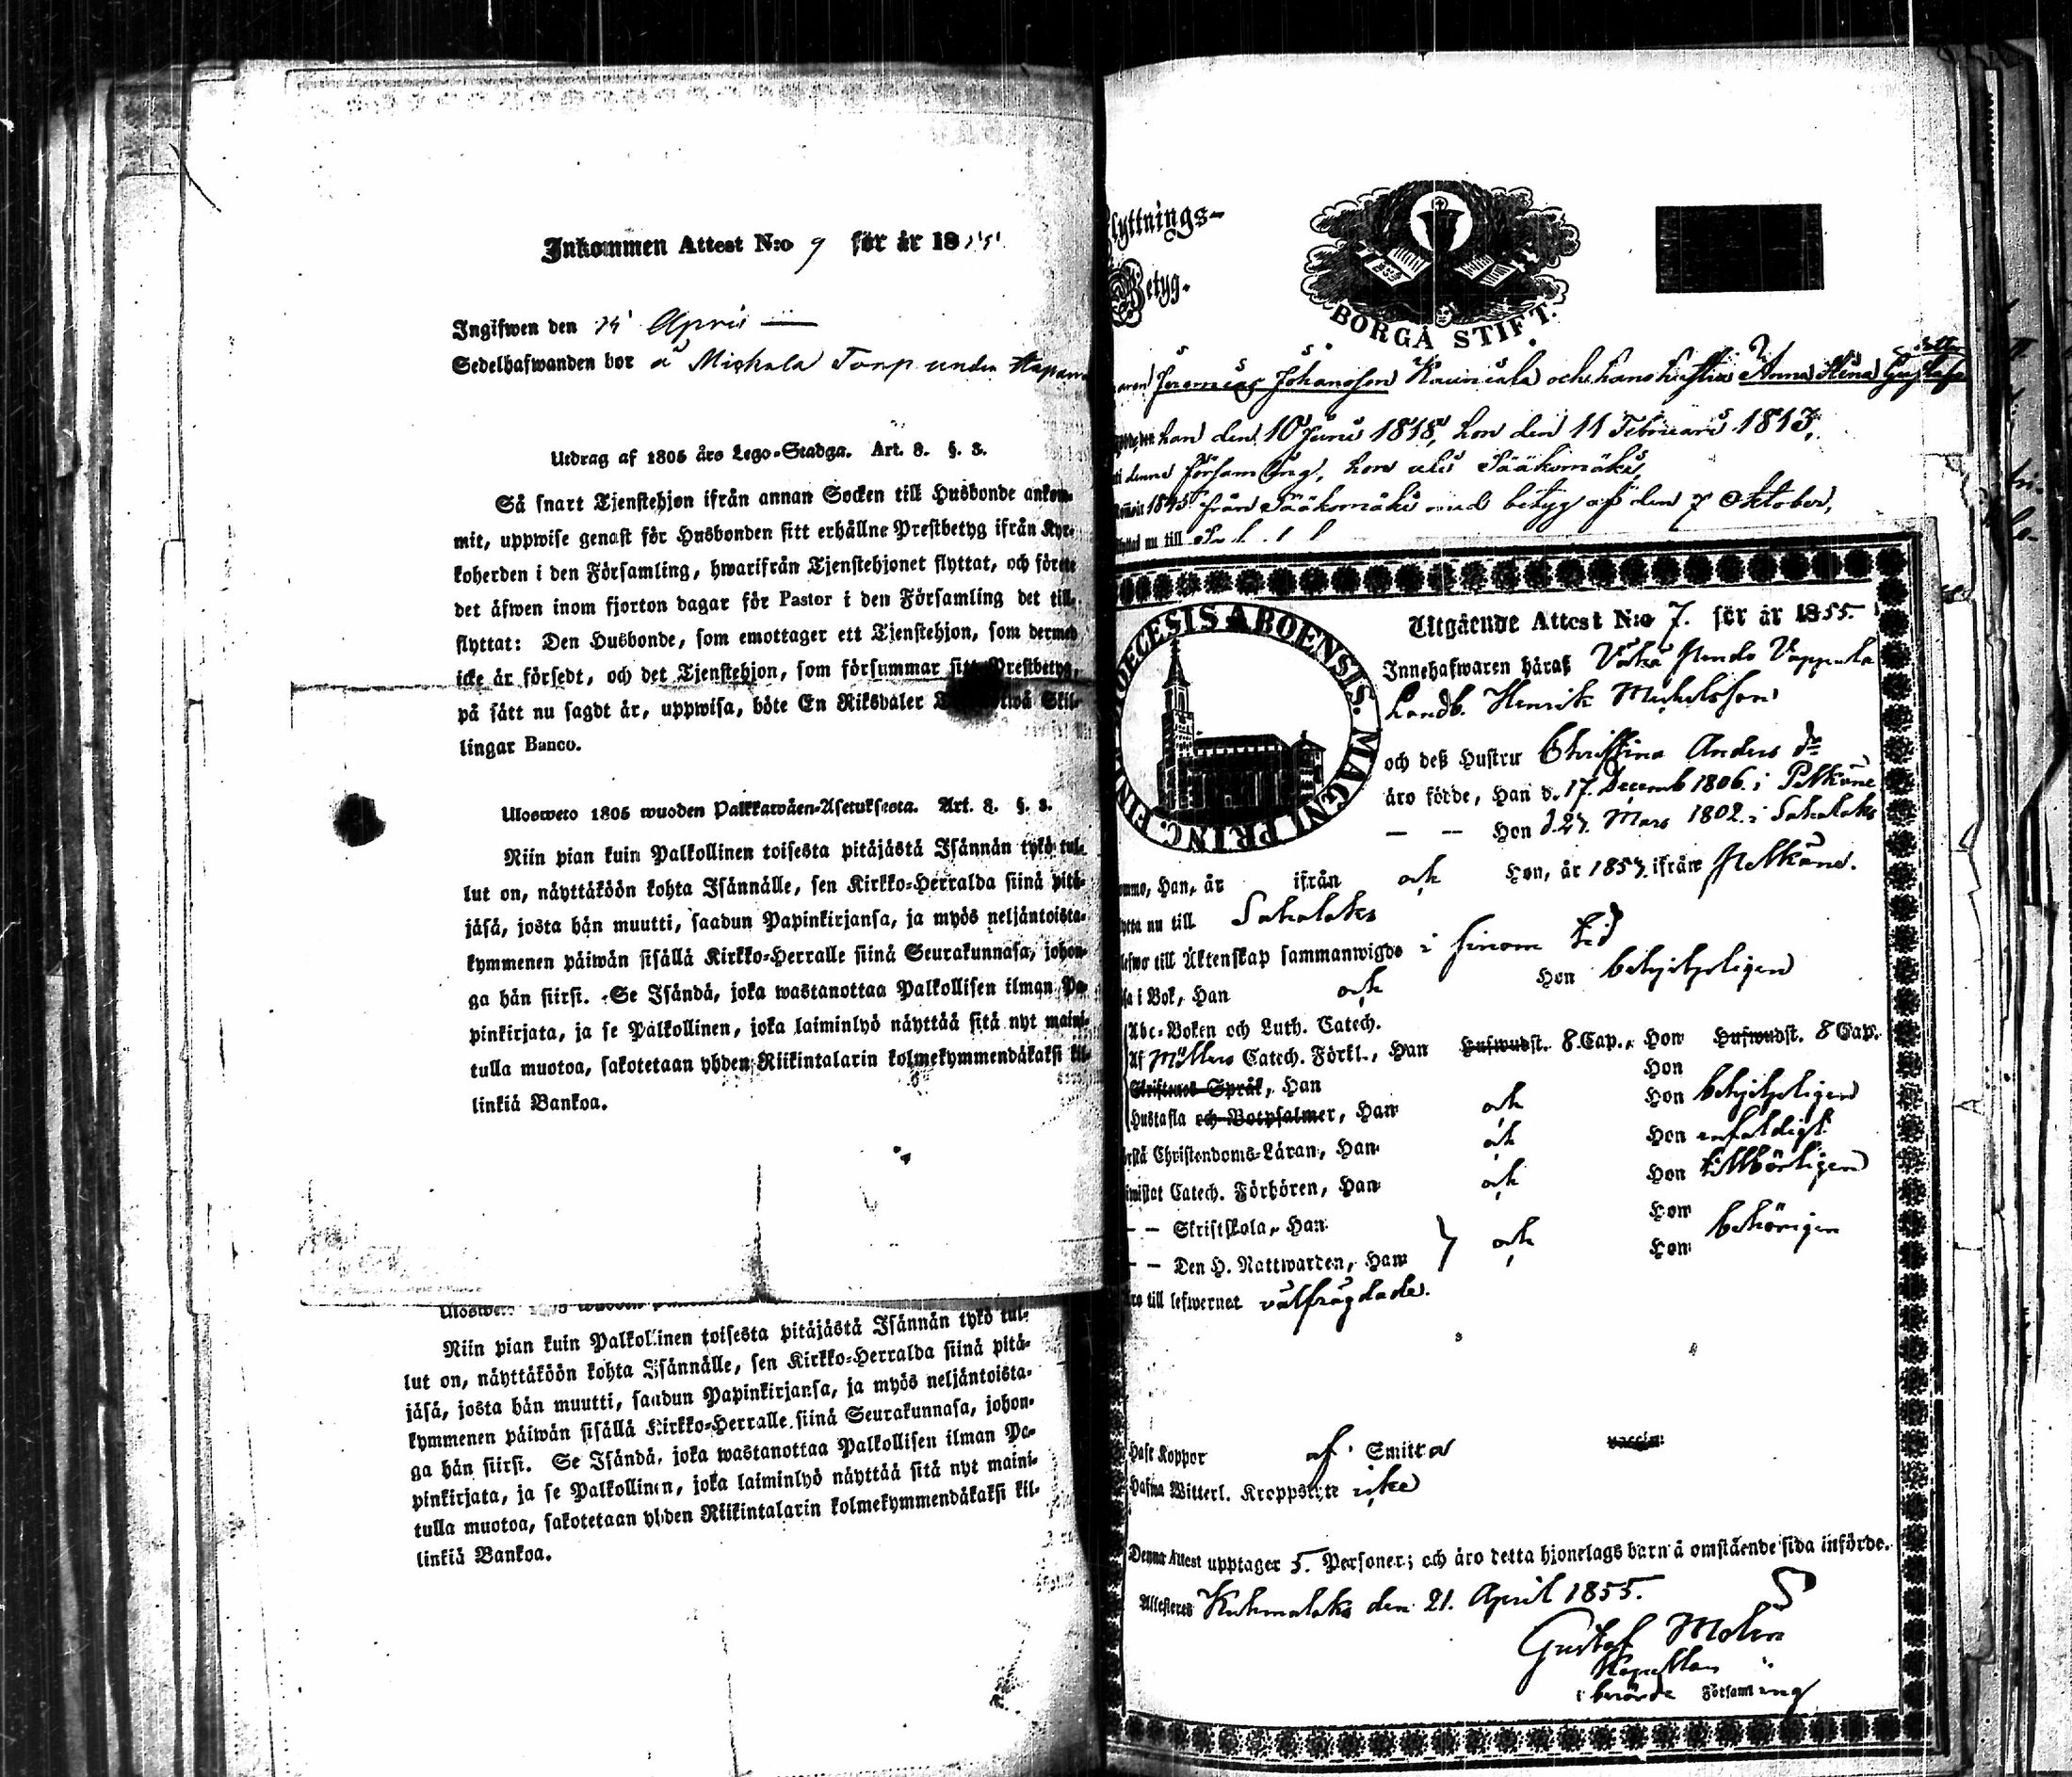 Inkommen Attest N:o 9 för år 1855
Ingifwen den April
Sedelhafwanden bor å Mickala Torp under
Utdrag af 1805 års Lego-Stadga. Art. 8. §. 3.
Så snart Tjenstehjon ifrån annan Socken till Husbonde ankom-
mit, uppwise genast för Husbonden sitt erhållne Prestbetyg ifrån Kyr-
koherden i den Församling, hwarifrån Tjenstehjonet flyttat, och förete
det äfwen inom fjorton dagar för Pastor i den Församling det till-
flyttat: Den Husbonde, som emottager ett Tjenstehjon, som dermed
icke är försedt, och det Tjenstehjon, som försummar sitt Prestbetyg,
på sätt nu sagdt är, uppwisa, böte En Riksdaler twå Skil-
lingar Banco.
Ulosweto 1805 wuoden Palkkawäen-Asetuksesta. Art. 8. §. 3.
Niin pian kuin Palkollinen toisesta pitäjästä Isännän tykö tul-
lut on, näyttäköön kohta Isännälle, sen Kirkko-Herralda siinä pitä-
jäsä, josta hän muutti, saadun Papinkirjansa, ja myös neljäntoista-
kymmenen päiwän sisällä Kirkko-Herralle siinä Seurakunnasa, johon-
ga hän siirsi. Se Isändä, joka wastanottaa Palkollisen ilman Pa-
pinkirjata, ja se Palkollinen, joka laiminlyö näyttää sitä nyt maini-
tulla muotoa, sakotetaan yhden Riikintalarin kolmekymmendäkaksi kil-
linkiä Bankoa.
Ulosweto 1805 wuoden
Niin pian kuin Palkollinen toisesta pitäjästä Isännän tykö tul-
lut on, näyttäköön kohta Isännälle, sen Kirkko-Herralda siinä pitä-
jäsä, josta hän muutti, saadun Papinkirjansa, ja myös neljäntoista-
kymmenen päiwän sisällä Kirkko-Herralle siinä Seurakunnasa, johon-
ga hän siirsi. Se Isändä, joka wastanottaa Palkollisen ilman Pa-
pinkirjata, ja se Palkollinen, joka laiminlyö näyttää sitä nyt maini-
tulla muotoa, sakotetaan yhden Riikintalarin kolmekymmendäkaksi kil-
linkiä Bankoa.
Flyttnings-
Betyg.
BORGÅ STIFT.
Jeremias Johansson och hans hustru Anna Stina
han den 10 Juni 1818, hon den 11 Februari 1813,
i denna församling, hon uti Sääksmäki,
1845 från Sääksmäki med betyg af den 7 Oktober,
nu till
DIOECESIS ABOENSIS. MAGNI PRINC. FINL.
Utgående Attest N:o 7. för år 1855.
Innehafwaren häraf
Landb. Henrik Michelsson
och deß Hustru Christina Anders dr
äro födde, Han d. 17 Decemb 1806. i Pelkäne
— — Hon d. 27. Mars 1802. i Sahalaks
Han, år ifrån och Hon, år 1857. ifrån Pelkäne.
nu till Sahalaks
till Äktenskap sammanwigde i sinom tid
i Bok, Han och Hon behjelpligen
Abc-Boken och Luth. Catech.
Af Möllers Catech. Förkl., Han Hufwudst. 8 Cap., Hon Hufwudst. 8 Cap.
Skriftenes Språk, Han Hon
Hustafla och Botpsalmer, Han och Hon behjelpligen
Christendoms-Läran, Han och Hon enfaldigt
Catech. Förhören, Han och Hon tillbörligen
— — Skriftskola, Han Hon
— — Den H. Nattwarden, Han och Hon behörigen
till lefwernet välfrägdade.
Haft Koppor af Smitta vaccin.
Hafwa Witterl. Kroppslyte icke
Denna Attest upptager 5. Personer; och äro detta hjonelags barn å omstående sida införde.
Attesteras Kuhmalaks den 21. April 1855.
Gustaf Molin
Kapellan
i berörde Församling